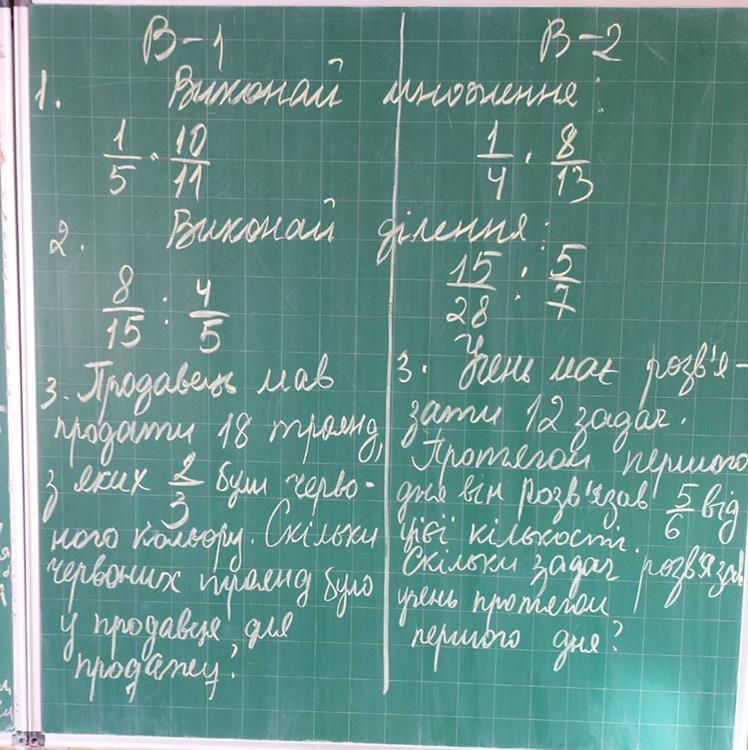 В-1
В-2
1. Виконай множення:
1/5 · 10/11
1/4 · 8/13
2. Виконай ділення:
8/15 : 4/5
15/28 : 5/7
3. Продавець мав
продати 18 троянд,
з яких 2/3 були черво-
ного кольору. Скільки
червоних троянд було
у продавця для
продажу?
3. Учень має розв'я-
зати 12 задач.
Протягом першого
дня він розв'язав 5/6 від
цієї кількості.
Скільки задач розв'язав
учень протягом
першого дня?